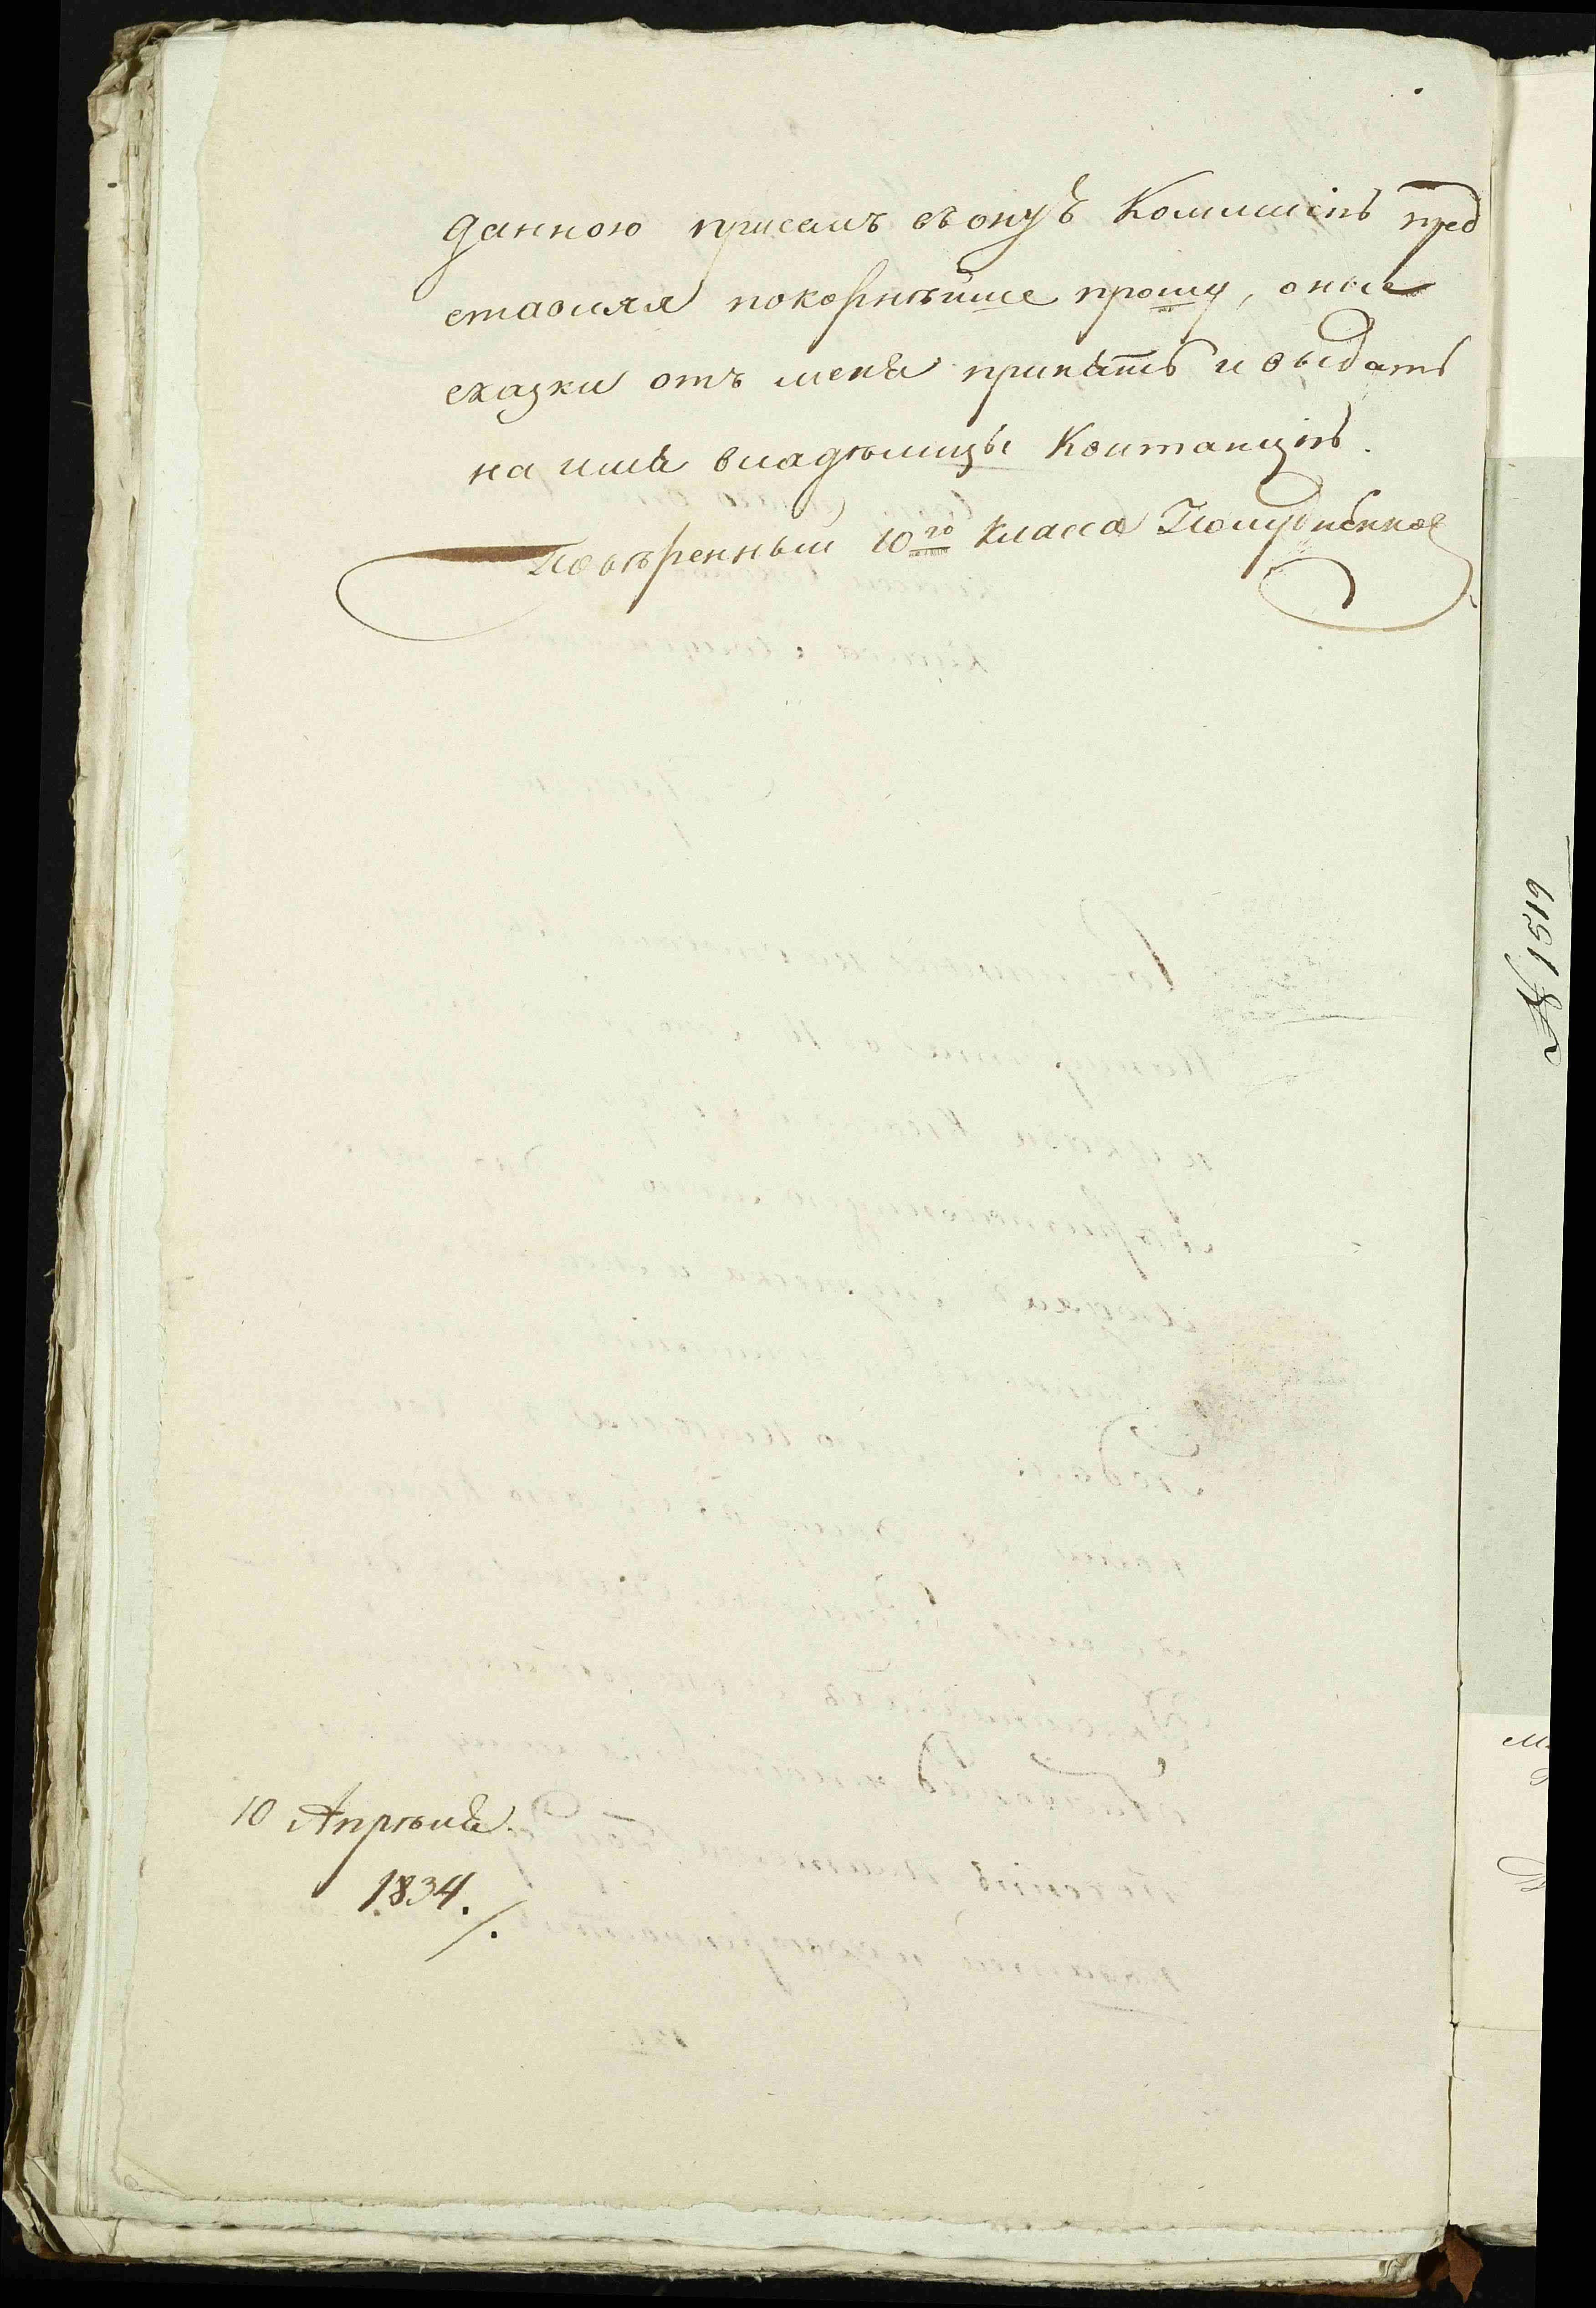 данною присемъ въ онуѣ Коммисію пред
ставляя покорнѣйше прошу, оные
сказки отъ меня принять и выдать
на имя владѣлицы Квитанцію.
Повѣренный 10го класса
10 Апрѣля
1834.
№ 1519